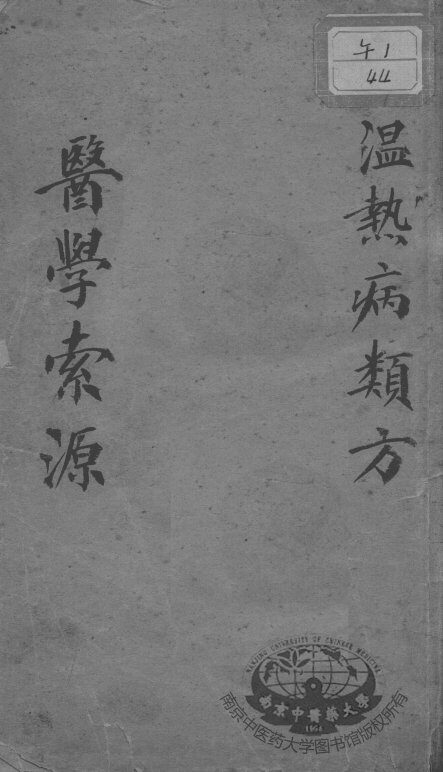 午1
44
温熱病類方
醫學索源
NANJING UNIVERSITY OF CHINESE MEDICINE
南京中醫藥大學
1954
南京中医药大学图书馆版权所有